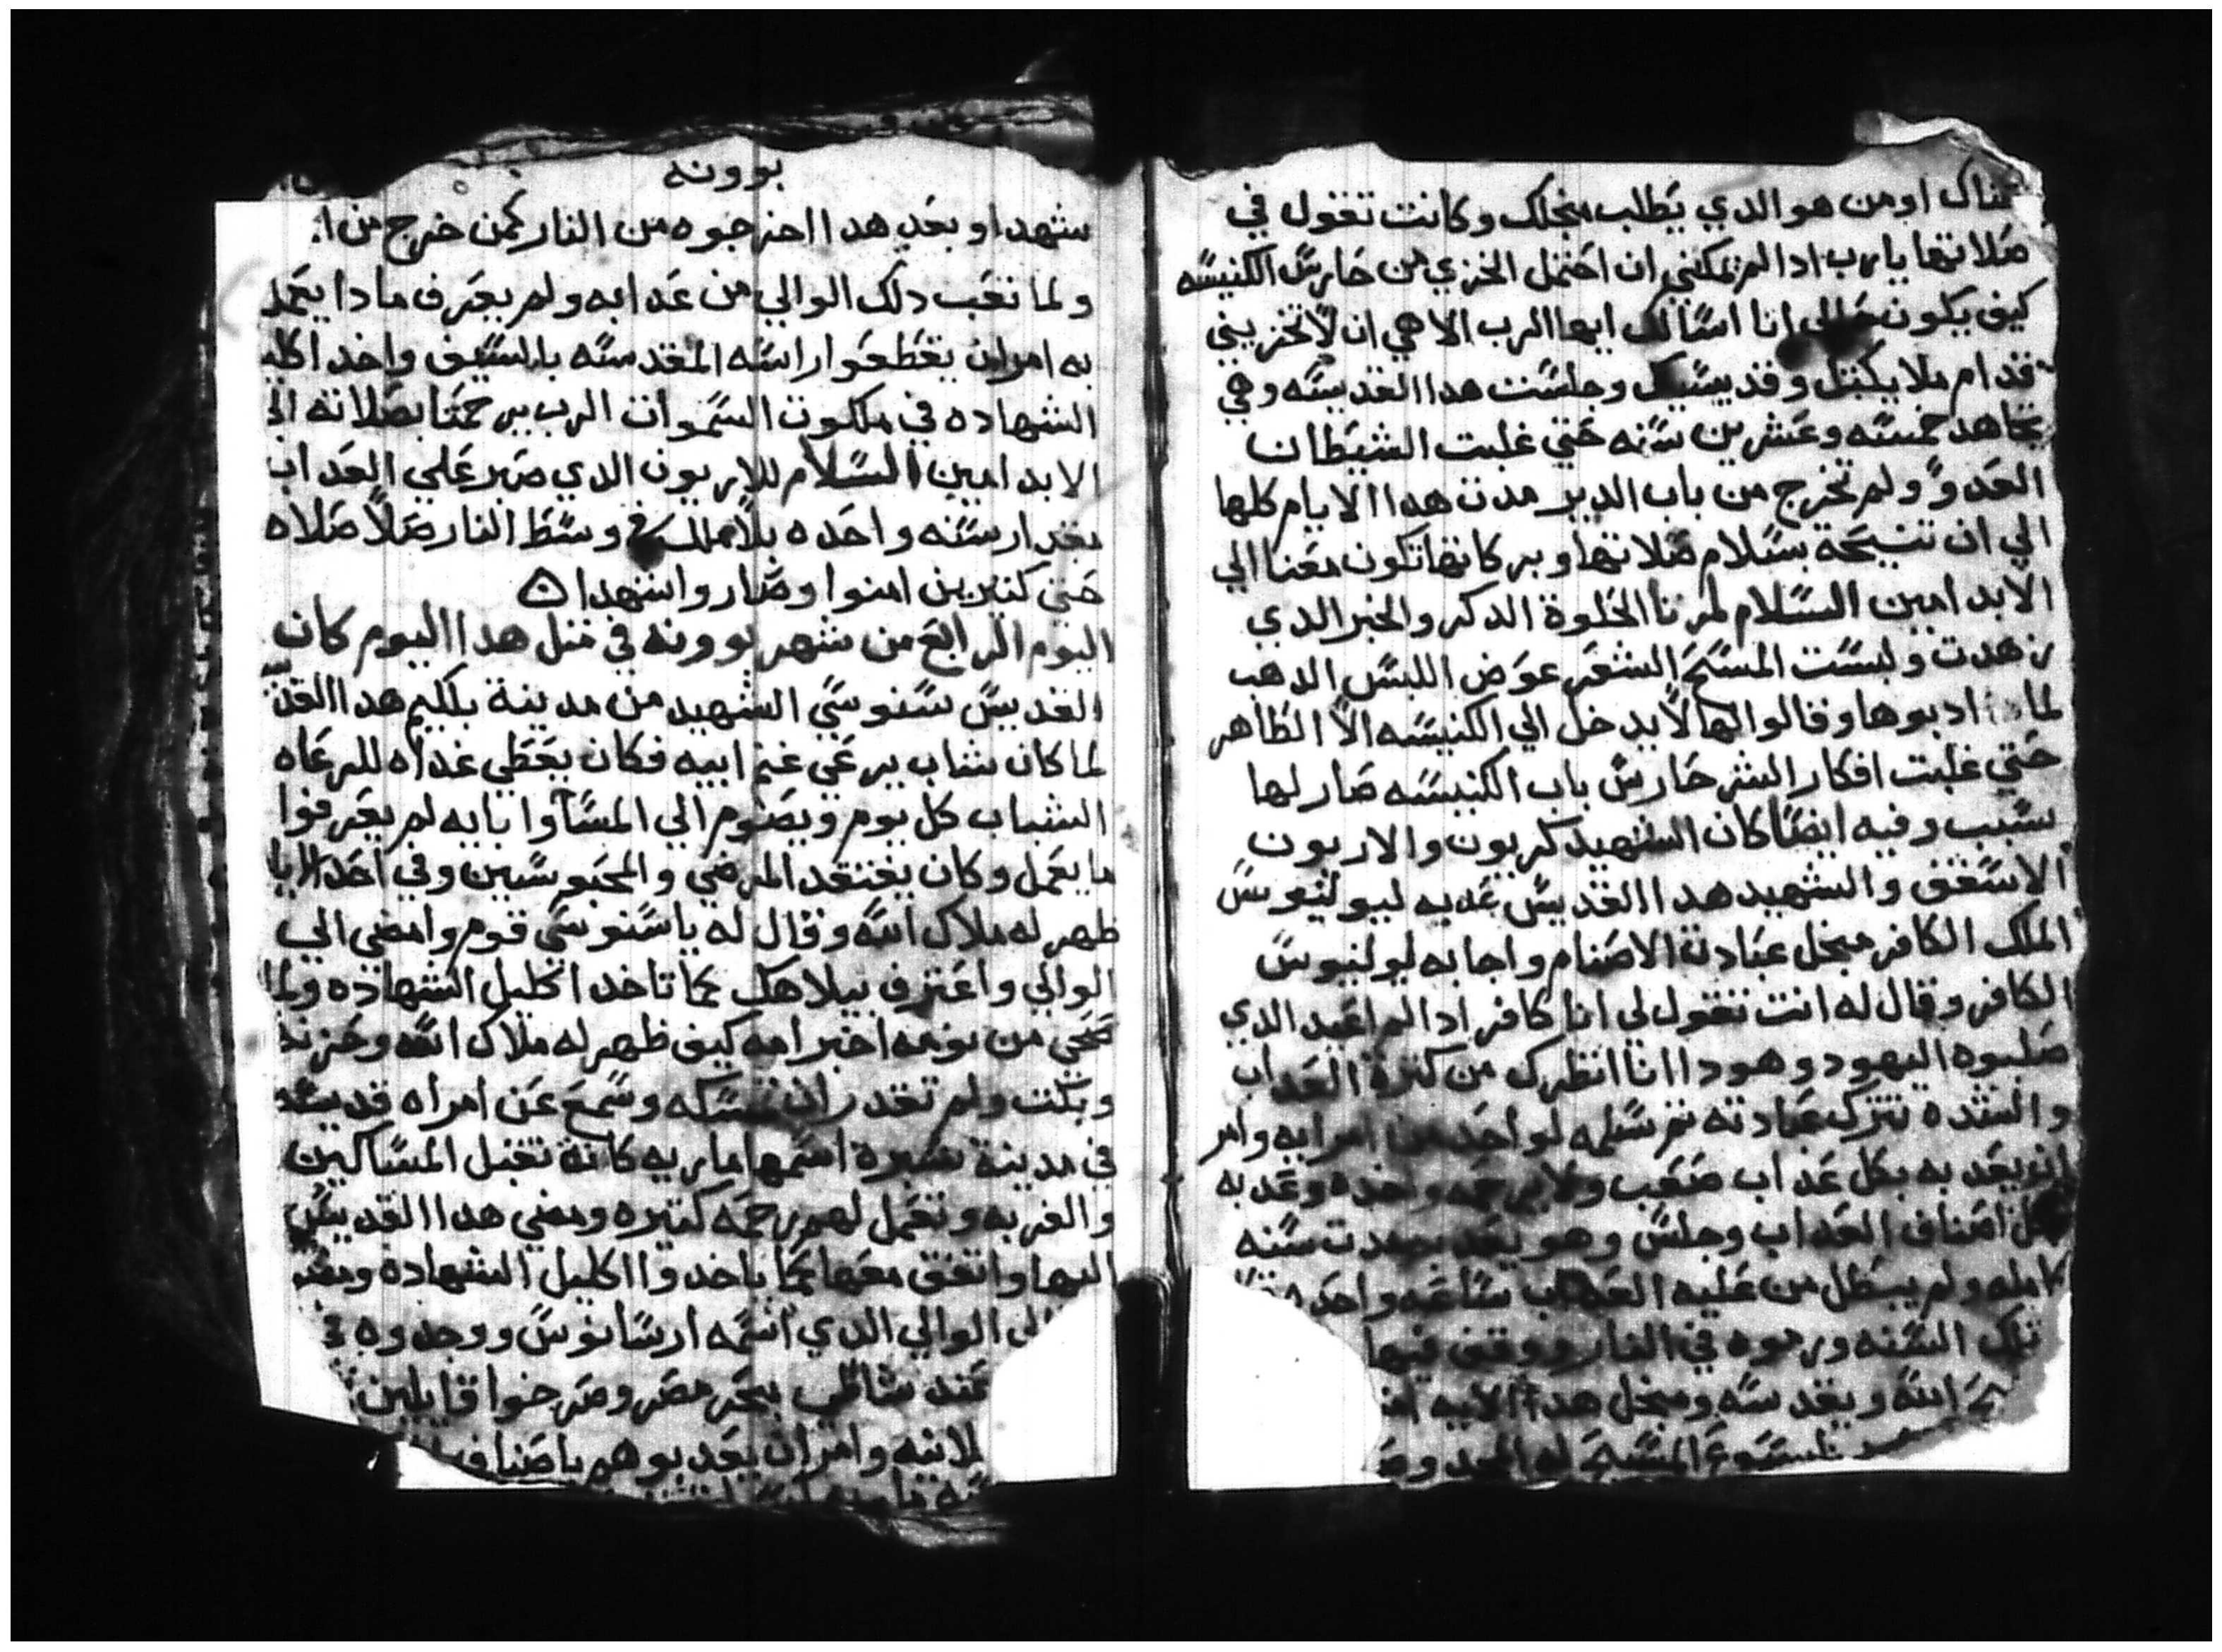 تمناك اومن هو الدي يطلب منجلك وكانت تقول في
صلاتها يارب ادا لم تمكني ان احتمل الخزي من حارس الكنيسه
كيف يكون حالي انا اسالك ايها الرب الاهي ان لا تخزيني
قدام ملايكتك وقديسيك وجلست هدا القديسه وهي
تجاهد خمسه وعشرين سنه حتي غلبت الشيطان
العدو ولم تخرج من باب الدير مدت هدا الايام كلها
الي ان تنيحة بسلام صلاتها وبركاتها تكون معنا الي
الابد امين السلام لمرتا الحلوة الدكر والخبر الدي
زهدت ولبست المسح الشعر عوض اللبس الدهب
لما ادبوها وقالوا لها لا يدخل الي الكنيسه الا الطاهر
حتي غلبت افكار الشر حارس باب الكنيسه صار لها
سبب وفيه ايضا كان الشهيد كربون والاربون
الاسقف والشهيد هدا القديس عديه ليوليوس
الملك الكافر منجل عبادة الاصنام واجابه ليوليوس
الكافر وقال له انت تقول لي انا كافر ادا لم اعبد الدي
صلبوه اليهود وهودا انا انظرك من كترة العداب
والشده تترك عبادته تم سلمه لواحد من امرايه وامر
ان يعدبه بكل عداب صعب ولا يرحمه وحده وعدبه
كل اصناف العداب وجلس وهو يعدب مدت سنه
كامله ولم يبطل من عليه العداب ساعه واحده
تلك السنه ورموه في النار ووقف فيها
الله ويقدسه ومنجل هدا الاله
يسوع المسيح له المجد
بوونه
شهدا وبعد هدا اخرجوه من النار كمن خرج من
ولما تعب دلك الوالي من عدابه ولم يعرف مادا يعمل
به امر ان يقطعوا راسه المقدسه بالسيف واخد اكليل
الشهاده في ملكوت السموات الرب يرحمنا بصلاته الي
الابد امين السلام للاربون الدي صبر علي العداب
بقدار سنه واحده بلا ملل في وسط النار صلا صلاه
حتي كتيرين امنوا وصاروا شهدا
اليوم الرابع من شهر بوونه في متل هدا اليوم كان
القديس سنوسي الشهيد من مدينة بلكيم هدا القد
لما كان شاب يرعي غنم ابيه فكان يعطي غداه للرعاه
الشباب كل يوم ويصوم الي المسا وابايه لم يعرفوا
ما يعمل وكان يفتقد المرضي والمحبوسين وفي احد الايا
ظهر له ملاك الله وقال له ياسنوسي قوم وامضي الي
الوالي واعترف بيلاهك كما تاخد اكليل الشهاده ولما
صحي من نومه اخبر امه كيف ظهر له ملاك الله وحزنت
وبكت ولم تقدر ان تمسكه وسمع عن امراه قديسه
في مدينة شبرة اسمها ماريه كانة تقبل المساكين
والغربه وتعمل لهم رحمه كتيره ومضي هدا القديس
اليها واتفق معها كما ياخدوا اكليل الشهادة ومضو
الي الوالي الدي اسمه ارسانوس ووجدوه في
عند شاطي بحر مصر وصرخوا قايلين
وامر ان يعدبوهم باصناف